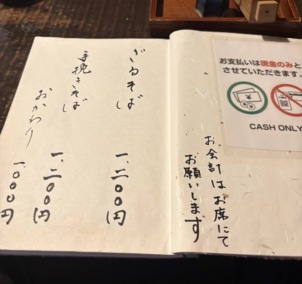 お支払いは現金のみと
させていただきます
CASH ONLY
お会計はお席にて
お願いします
ざるそば
一、二〇〇円
手挽きそば
一、二〇〇円
おかわり
一、〇〇〇円